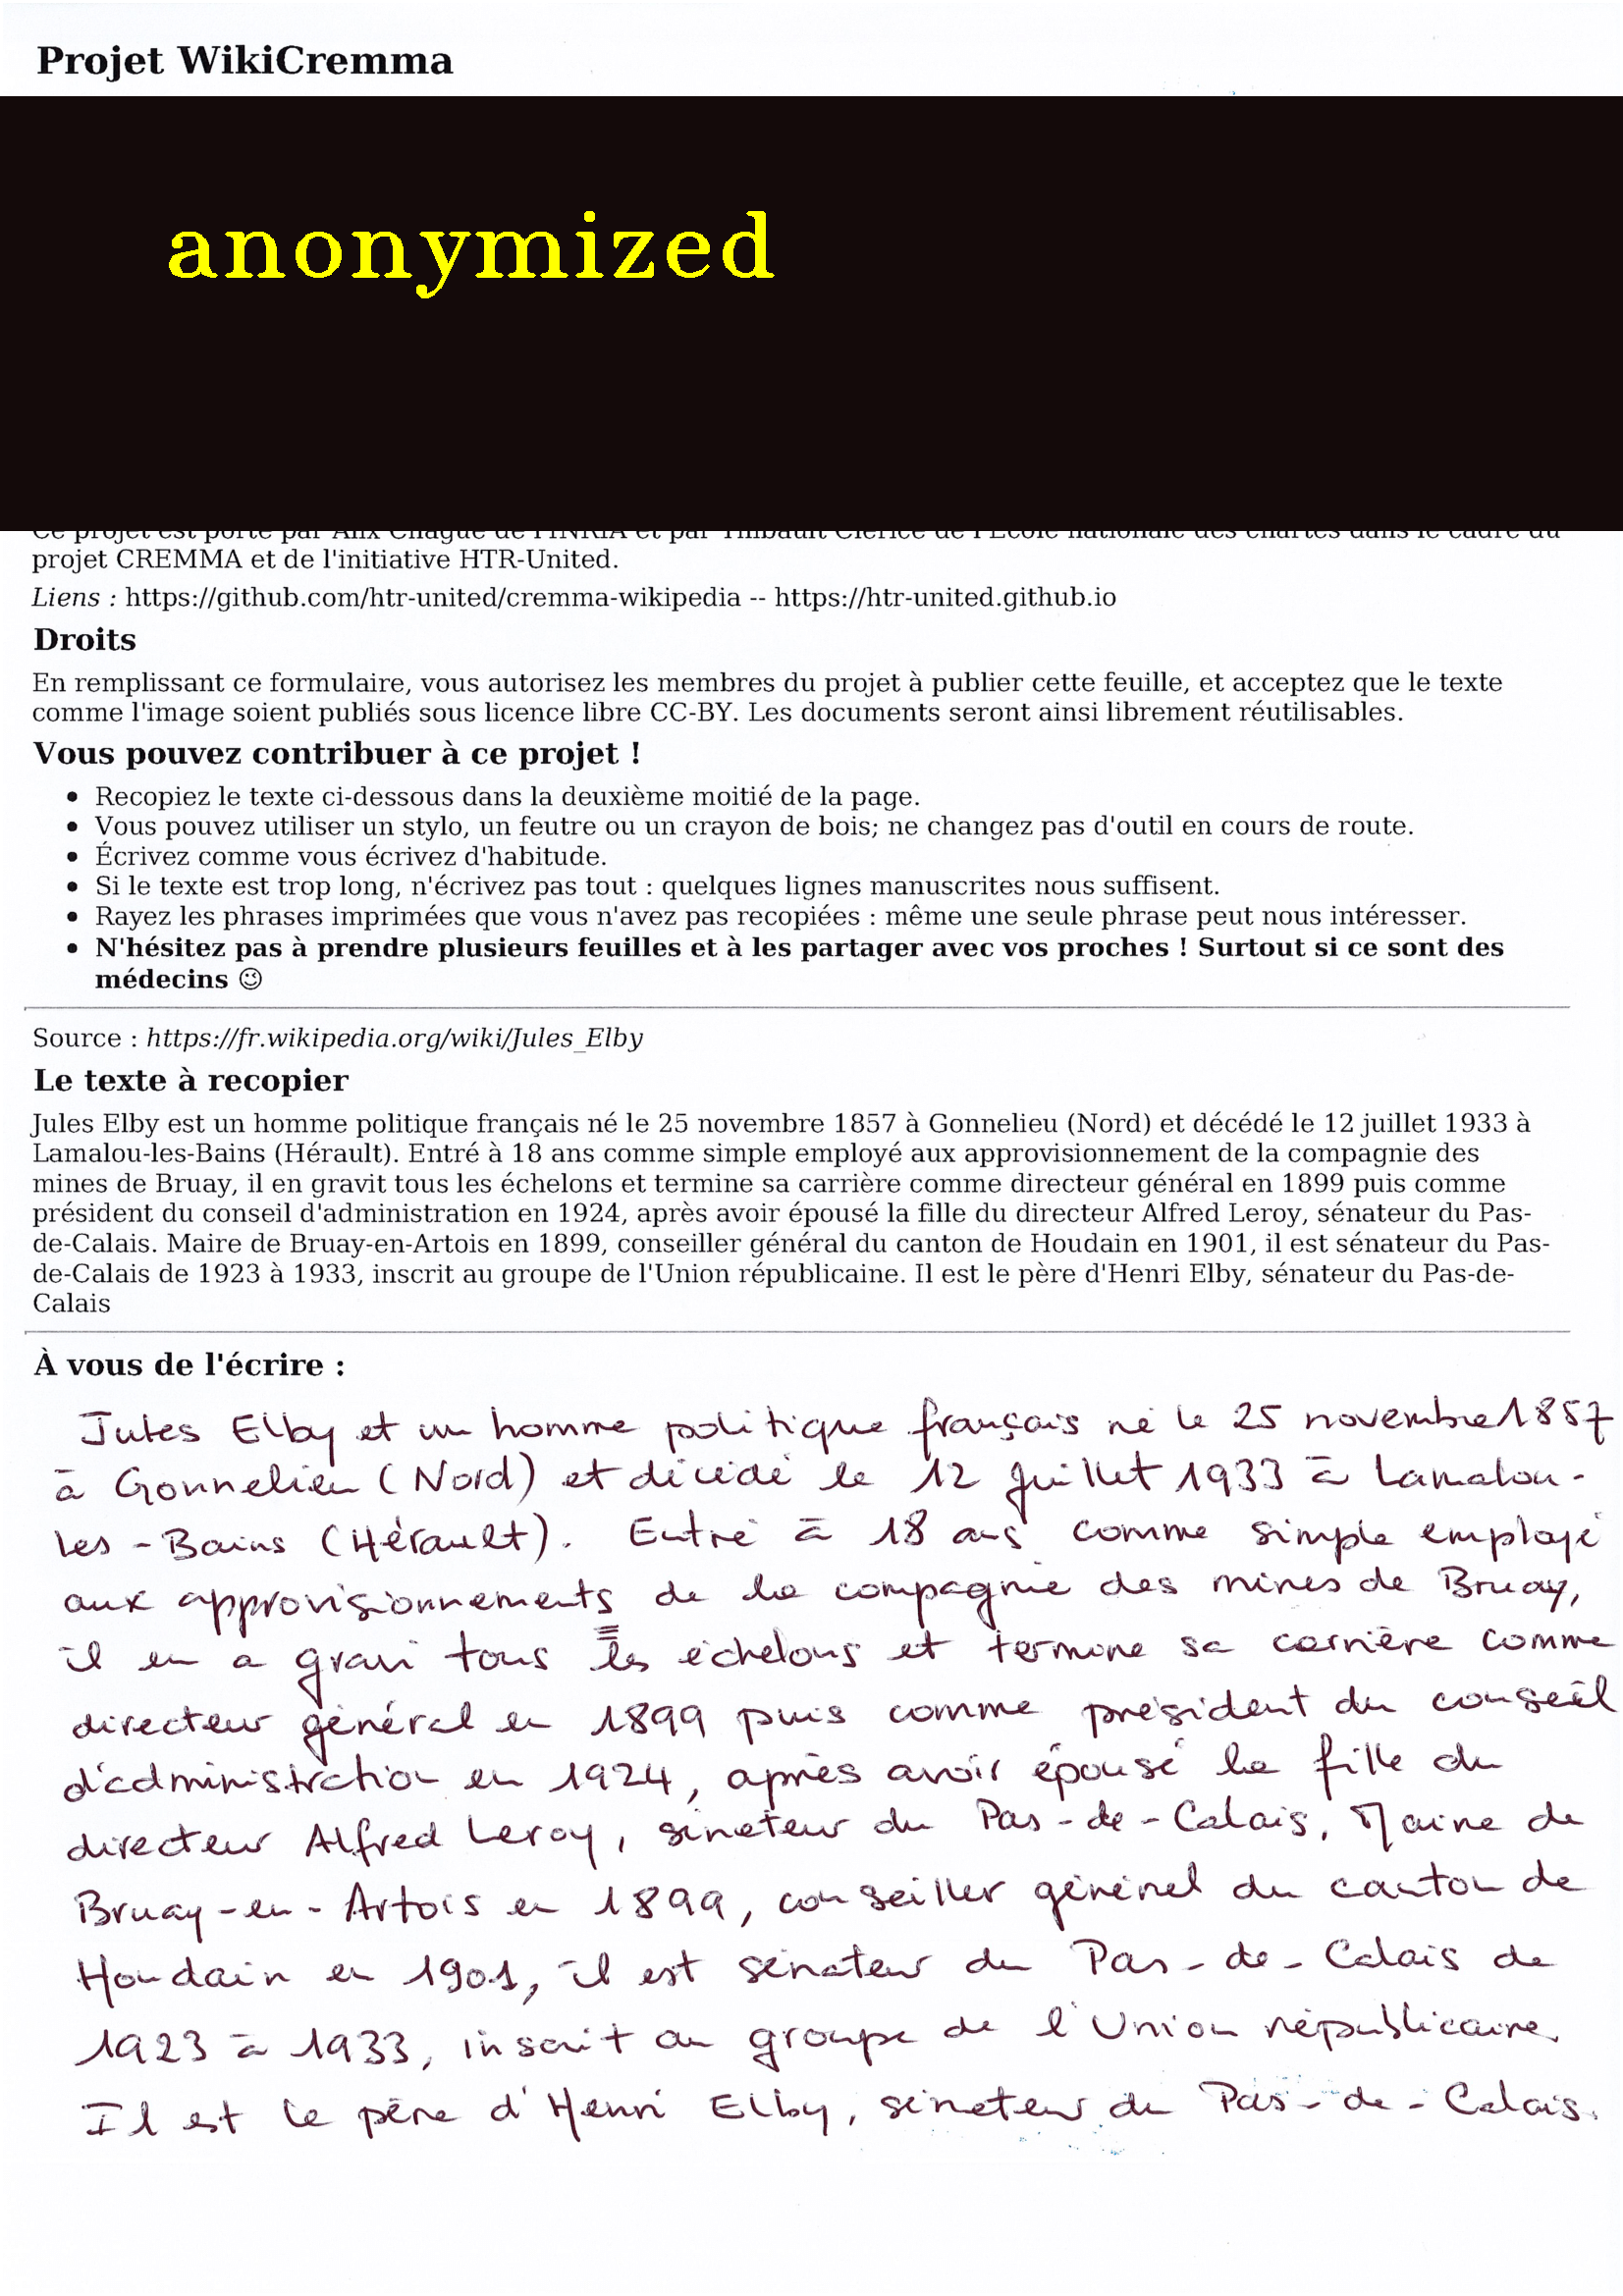 Projet WikiCremma
anonymized
Ce projet est porté par Alix Chagué de l'INRIA et par Thibault Clérice de l'École nationale des chartes dans le cadre du
projet CREMMA et de l'initiative HTR-United.
Liens : https://github.com/htr-united/cremma-wikipedia -- https://htr-united.github.io
Droits
En remplissant ce formulaire, vous autorisez les membres du projet à publier cette feuille, et acceptez que le texte
comme l'image soient publiés sous licence libre CC-BY. Les documents seront ainsi librement réutilisables.
Vous pouvez contribuer à ce projet !
• Recopiez le texte ci-dessous dans la deuxième moitié de la page.
• Vous pouvez utiliser un stylo, un feutre ou un crayon de bois; ne changez pas d'outil en cours de route.
• Écrivez comme vous écrivez d'habitude.
• Si le texte est trop long, n'écrivez pas tout : quelques lignes manuscrites nous suffisent.
• Rayez les phrases imprimées que vous n'avez pas recopiées : même une seule phrase peut nous intéresser.
• N'hésitez pas à prendre plusieurs feuilles et à les partager avec vos proches ! Surtout si ce sont des
médecins 😉
Source : https://fr.wikipedia.org/wiki/Jules_Elby
Le texte à recopier
Jules Elby est un homme politique français né le 25 novembre 1857 à Gonnelieu (Nord) et décédé le 12 juillet 1933 à
Lamalou-les-Bains (Hérault). Entré à 18 ans comme simple employé aux approvisionnement de la compagnie des
mines de Bruay, il en gravit tous les échelons et termine sa carrière comme directeur général en 1899 puis comme
président du conseil d'administration en 1924, après avoir épousé la fille du directeur Alfred Leroy, sénateur du Pas-
de-Calais. Maire de Bruay-en-Artois en 1899, conseiller général du canton de Houdain en 1901, il est sénateur du Pas-
de-Calais de 1923 à 1933, inscrit au groupe de l'Union républicaine. Il est le père d'Henri Elby, sénateur du Pas-de-
Calais
À vous de l'écrire :
Jules Elby et un homme politique français né le 25 novembre 1857
à Gonnelieu (Nord) et décédé le 12 juillet 1933 à Lamalou-
les-Bains (Hérault). Entré à 18 ans comme simple employé
aux approvisionnements de la compagnie des mines de Bruay,
il en a gravi tous les échelons et termine sa carrière comme
directeur général en 1899 puis comme président du conseil
d'administration en 1924, après avoir épousé la fille du
directeur Alfred Leroy, sénateur du Pas-de-Calais. Maire de
Bruay-en-Artois en 1899, conseiller général du canton de
Houdain en 1901, il est sénateur du Pas-de-Calais de
1923 à 1933, inscrit au groupe de l'Union républicaine.
Il est le père d'Henri Elby, sénateur du Pas-de-Calais.